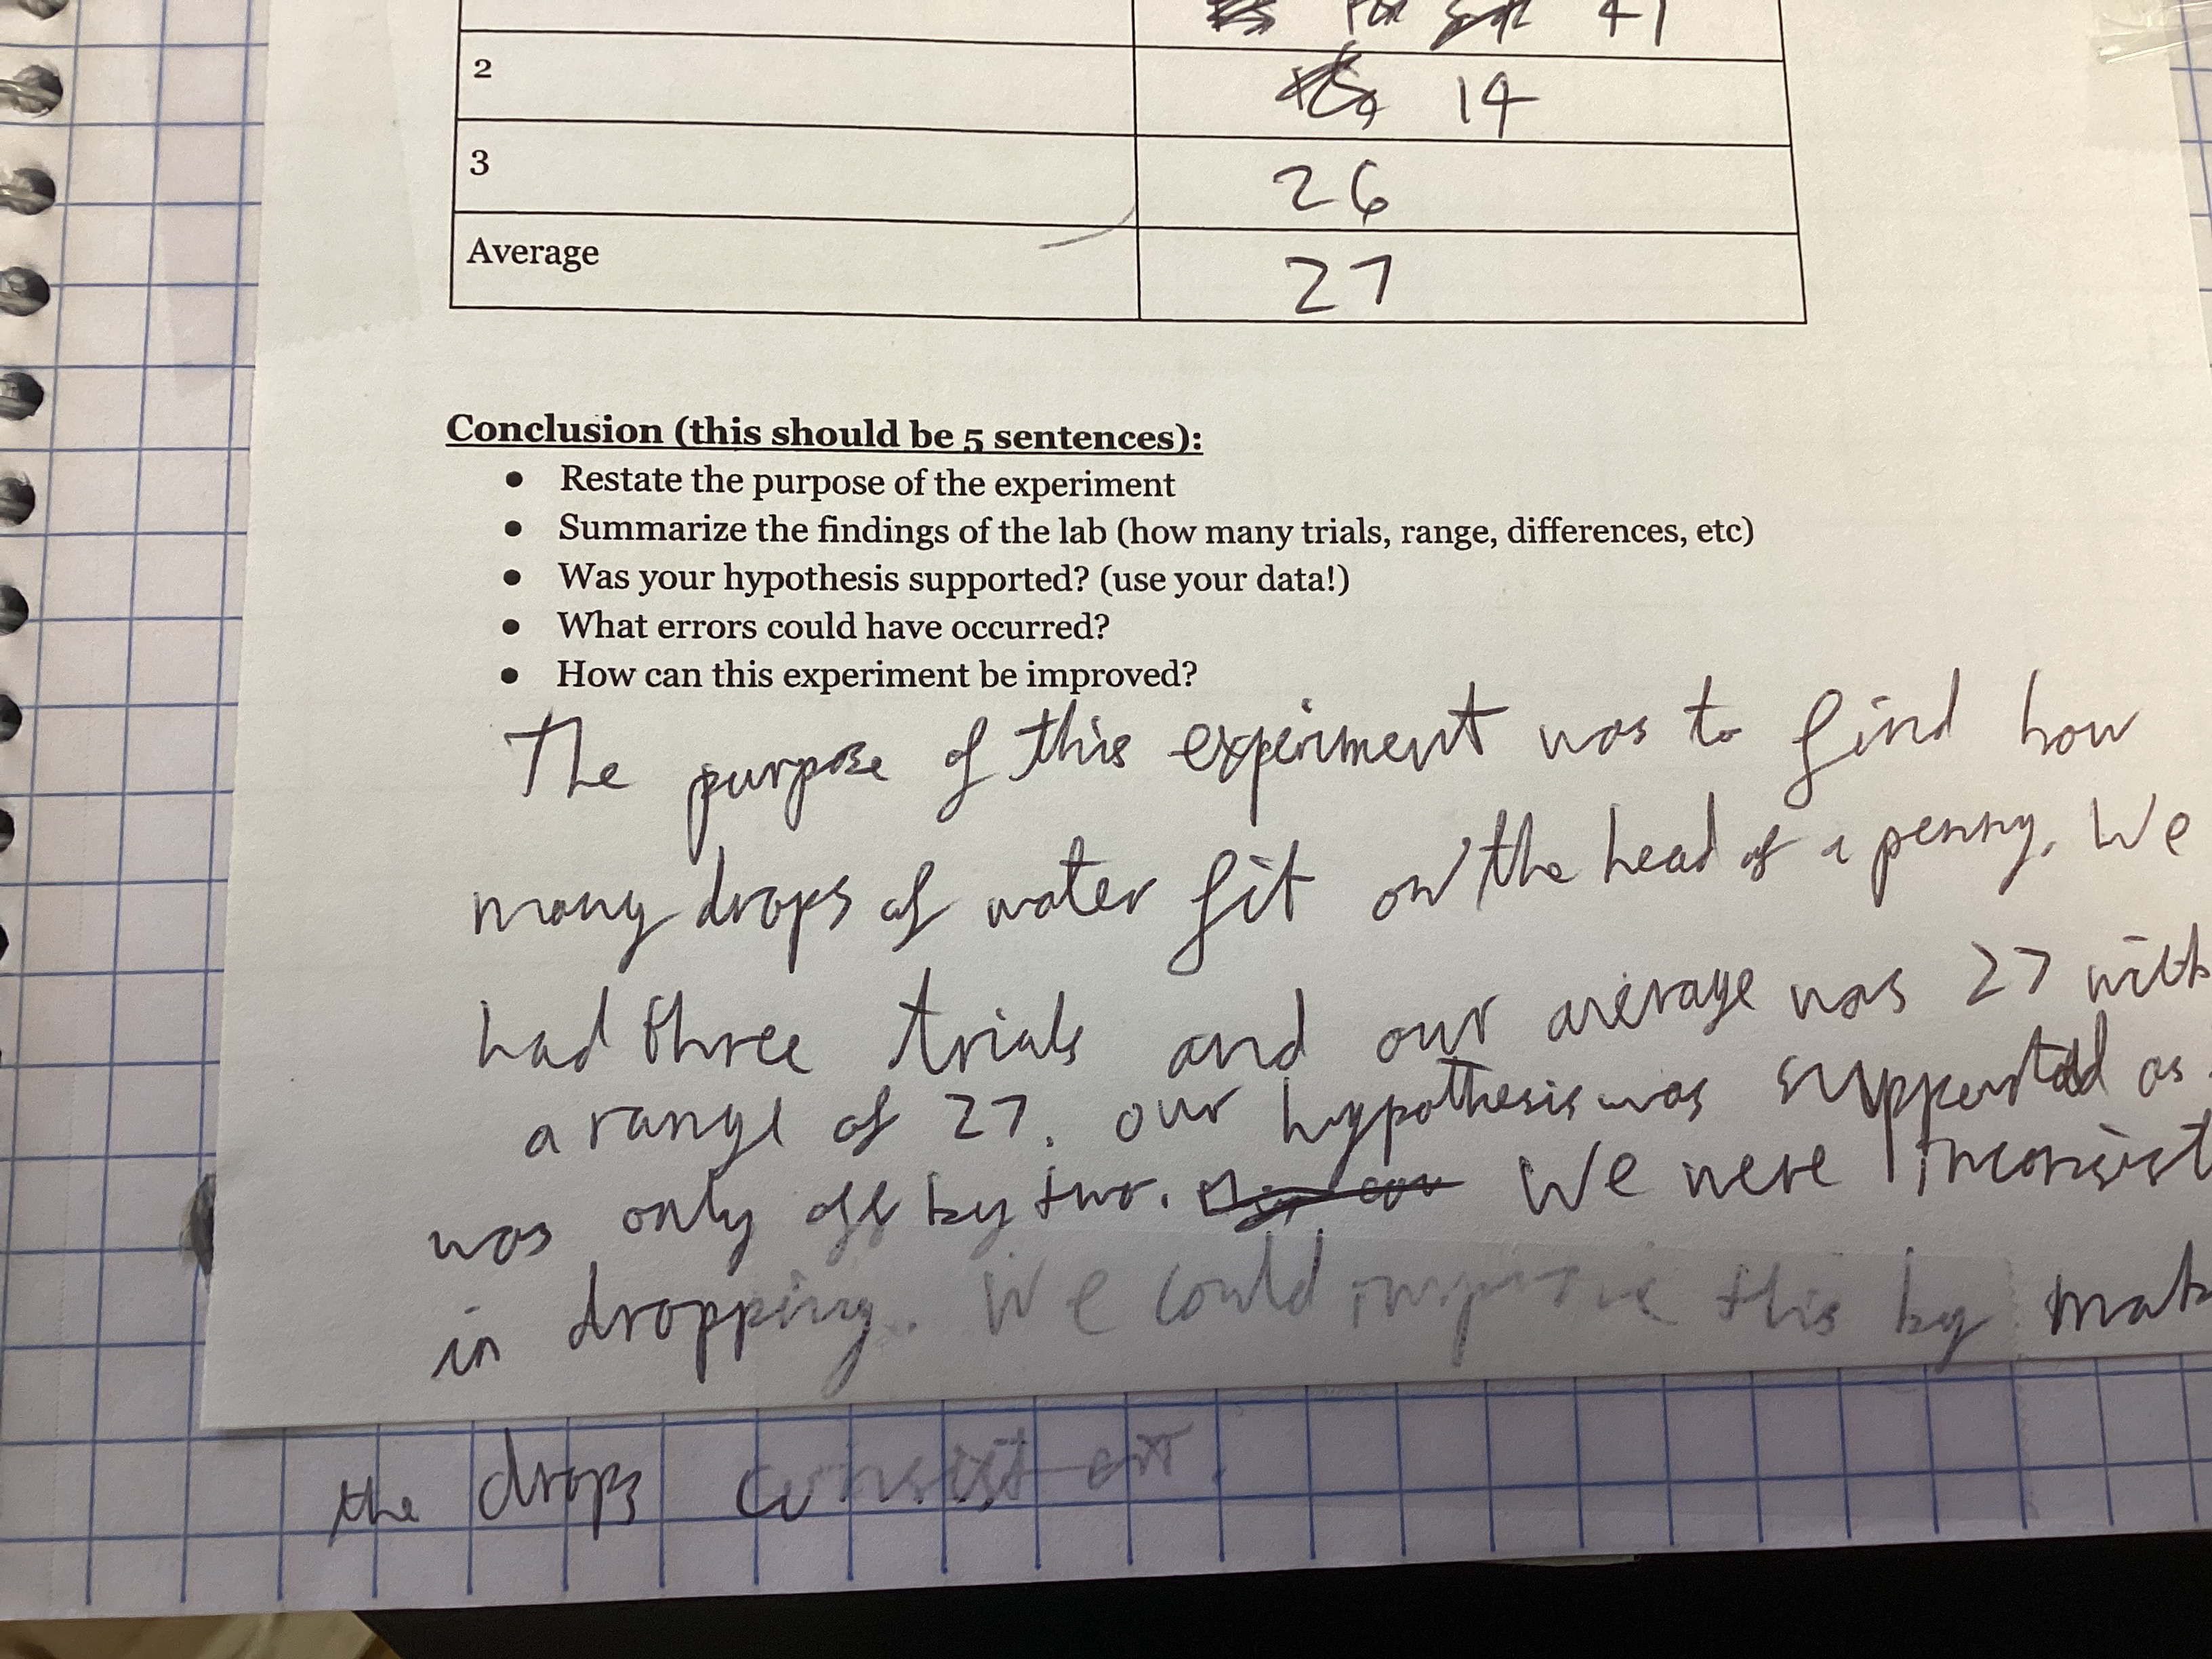 41
2 14
3 26
Average 27
Conclusion (this should be 5 sentences):
• Restate the purpose of the experiment
• Summarize the findings of the lab (how many trials, range, differences, etc)
• Was your hypothesis supported? (use your data!)
• What errors could have occurred?
• How can this experiment be improved?
The purpose of this experiment was to find how
many drops of water fit on the head of a penny. We
had three trials and our average was 27 with
a range of 27. our hypothesis was supported as
was only off by two. We were inconsist
in dropping. We could improve this by mak
the drops consistent.